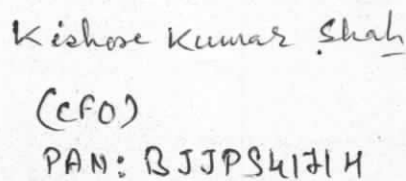 Kishore Kumar Shah
(CFO)
PAN: BJJPS4171H